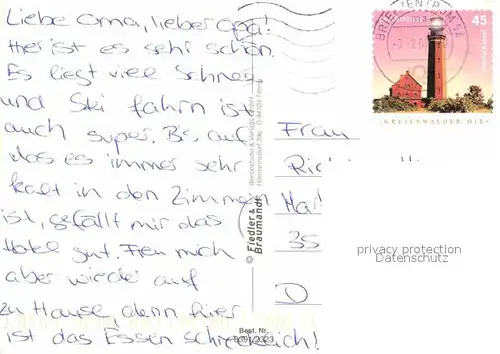 Liebe Oma, lieber Opa!
Hier ist es sehr schön.
Es liegt viel Schnee
und Ski fahrn ist
auch super. Bis auf
das es immer sehr
kalt in den Zimmern
ist, gefällt mir das
Hotel gut. Freu mich
aber wieder auf
zu Hause, denn hier
ist das Essen schrecklich!
BRIEFZENTRUM
45
Deutschland
GREIFSWALDER OIE
Frau
35
D
privacy protection
Datenschutz
© Fiedler & Braumandl
Best. Nr.
6391/2323